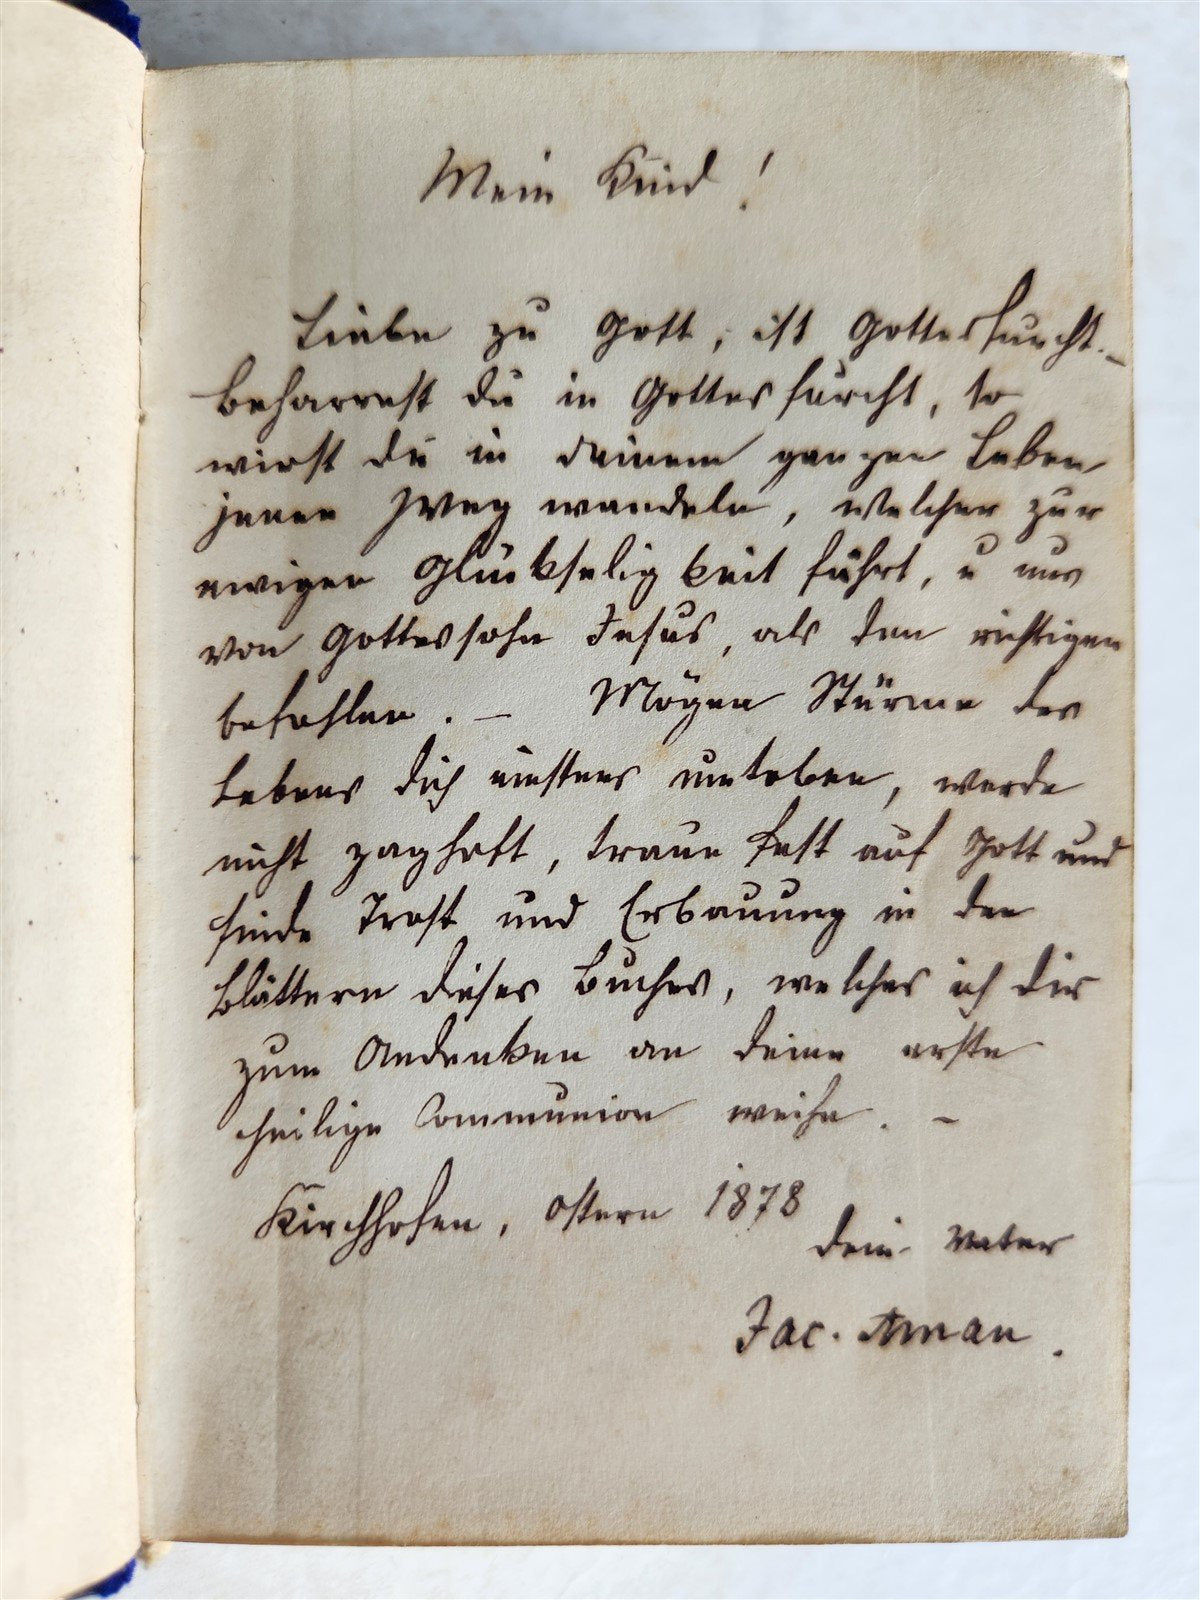 Mein Kind!
Liebe zu Gott, ist Gottesfurcht. –
Beharrest du in Gottesfurcht, so
wirst du in deinem ganzen Leben
jenen Weg wandeln, welcher zur
ewigen Glückseligkeit führt, u uns
von Gottessohn Jesus, als den richtigen
befohlen. – Mögen Stürme des
Lebens dich einstens umtoben, werde
nicht zaghaft, traue fest auf Gott und
finde Trost und Erbauung in den
Blättern dieses Buches, welches ich dir
zum Andenken an deine erste
heilige Communion weihe. –
Kirchhofen, Ostern 1878
dein Vater
Jac. Aman.